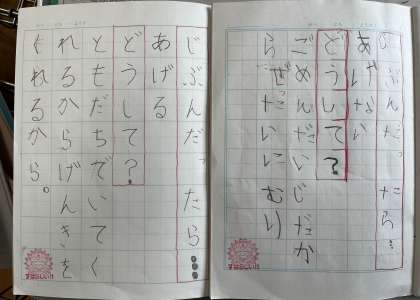 じぶんだったら…
あげない
どうして?
ごめんだいじだか
らぜったいにむり
じぶんだったら…
あげる
どうして?
ともだちでいてく
れるからげんきを
くれるから。
すばらしい!!
すばらしい!!